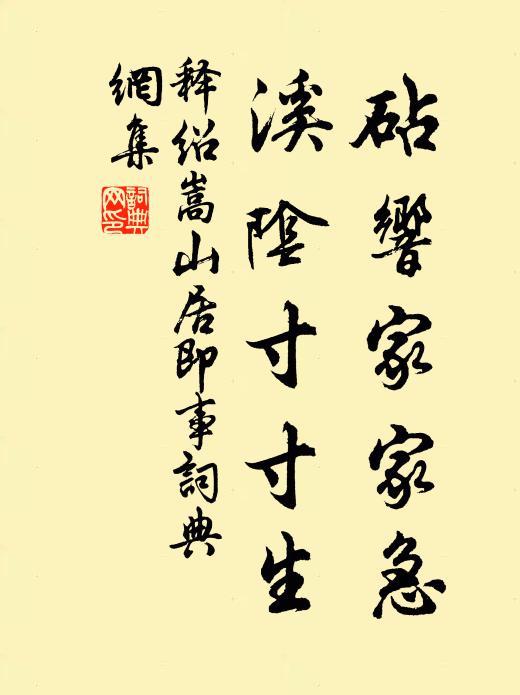 砧響家家急
溪陰寸寸生
释绍嵩山居即事詞典
網集
詞典網印